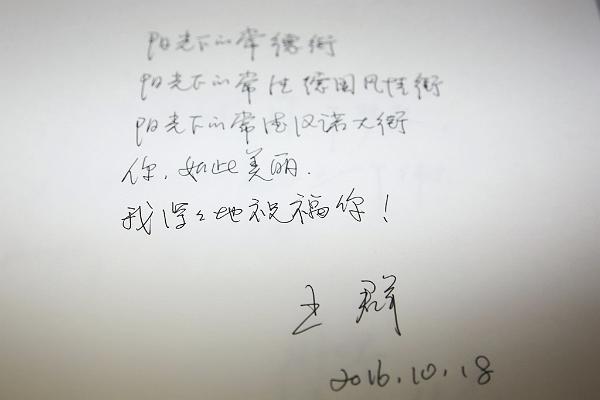 阳光下的常德街
阳光下的常德德国风情街
阳光下的常德汉诺大街
你,如此美丽.
我深深地祝福你!
王群
2016.10.18